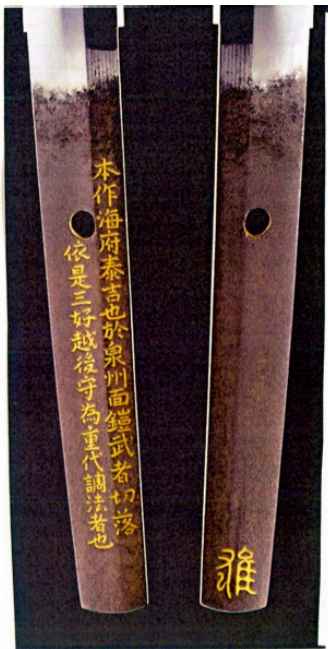 本作海府泰吉也於泉州面鎧武者切落
依是三好越後守為重代調法者也